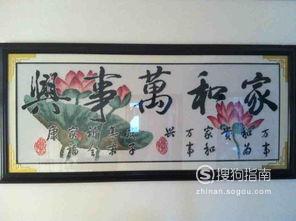 家和萬事興
万事
和为
贵
家和
万事
兴
康
搜狗指南
zhinan.sogou.com